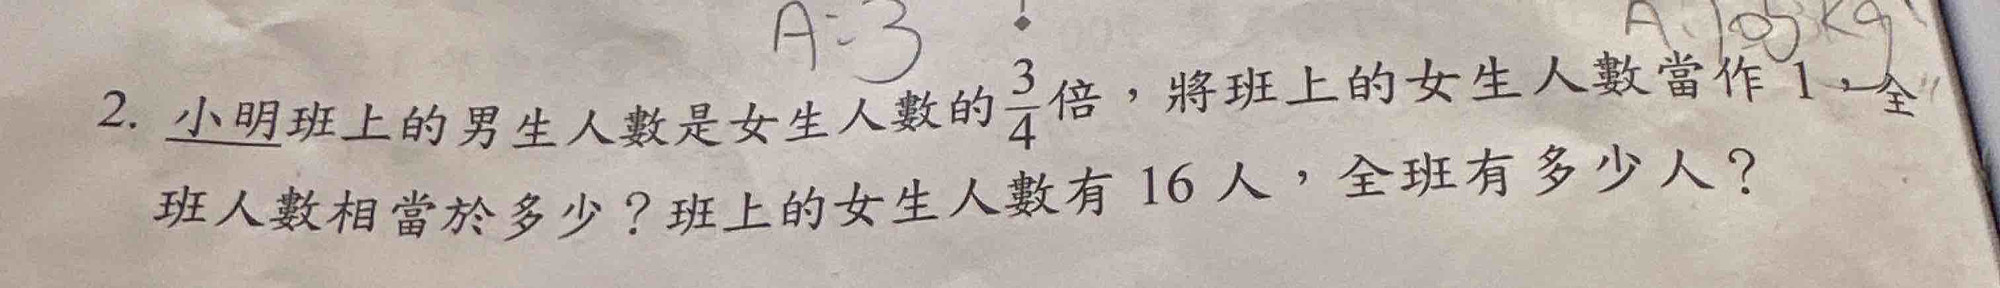 A=3
A 105kg
2. 小明班上的男生人數是女生人數的3/4倍，將班上的女生人數當作 1，全
班人數相當於多少？班上的女生人數有 16 人，全班有多少人？